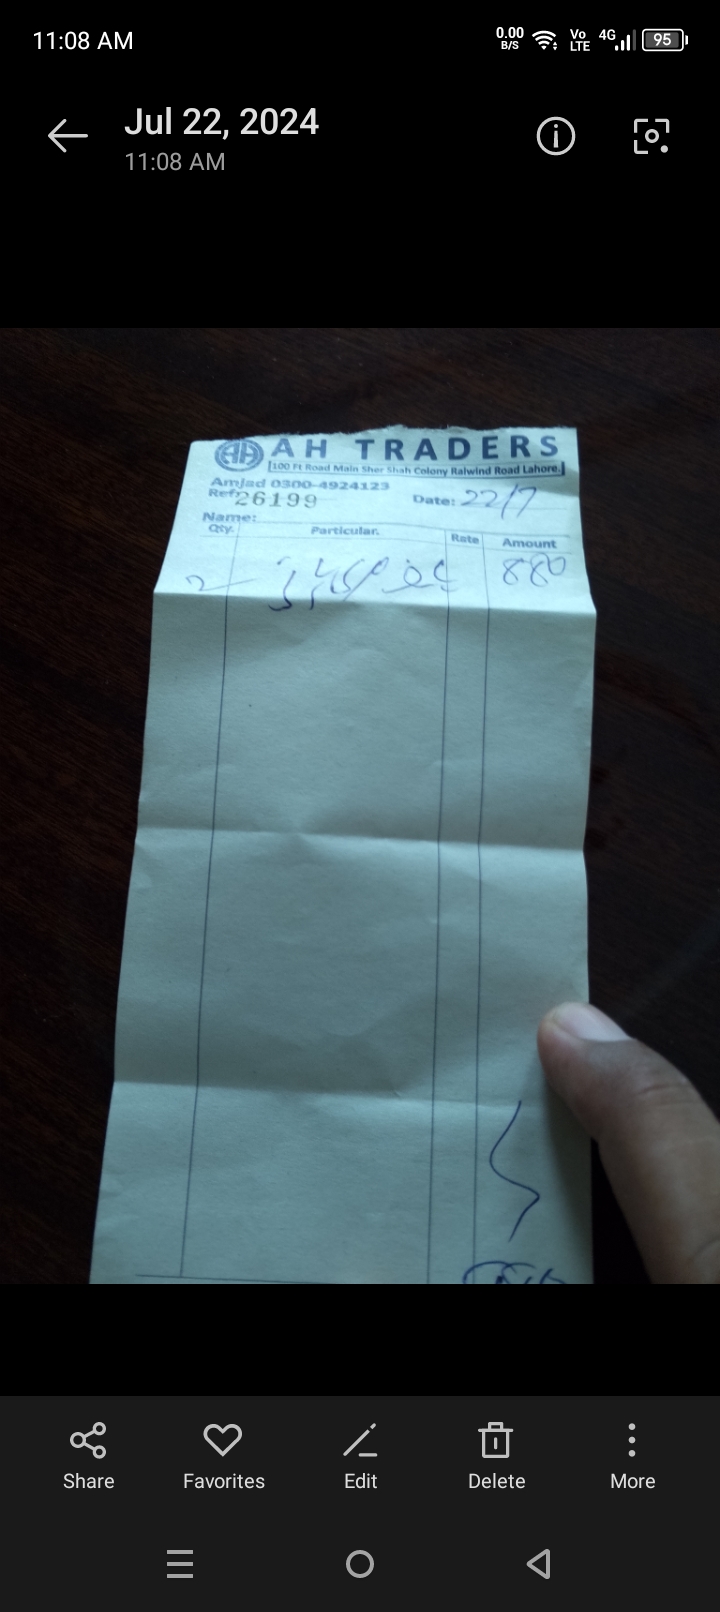 11:08 AM
0.00 B/S Vo LTE 4G 95
Jul 22, 2024
11:08 AM
AH AH TRADERS
100 Ft Road Main Sher Shah Colony Raiwind Road Lahore.
Amjad 0300-4924123
Ref: 26199 Date: 22/7
Name:
Qty. Particular. Rate Amount
2 880
Share Favorites Edit Delete More